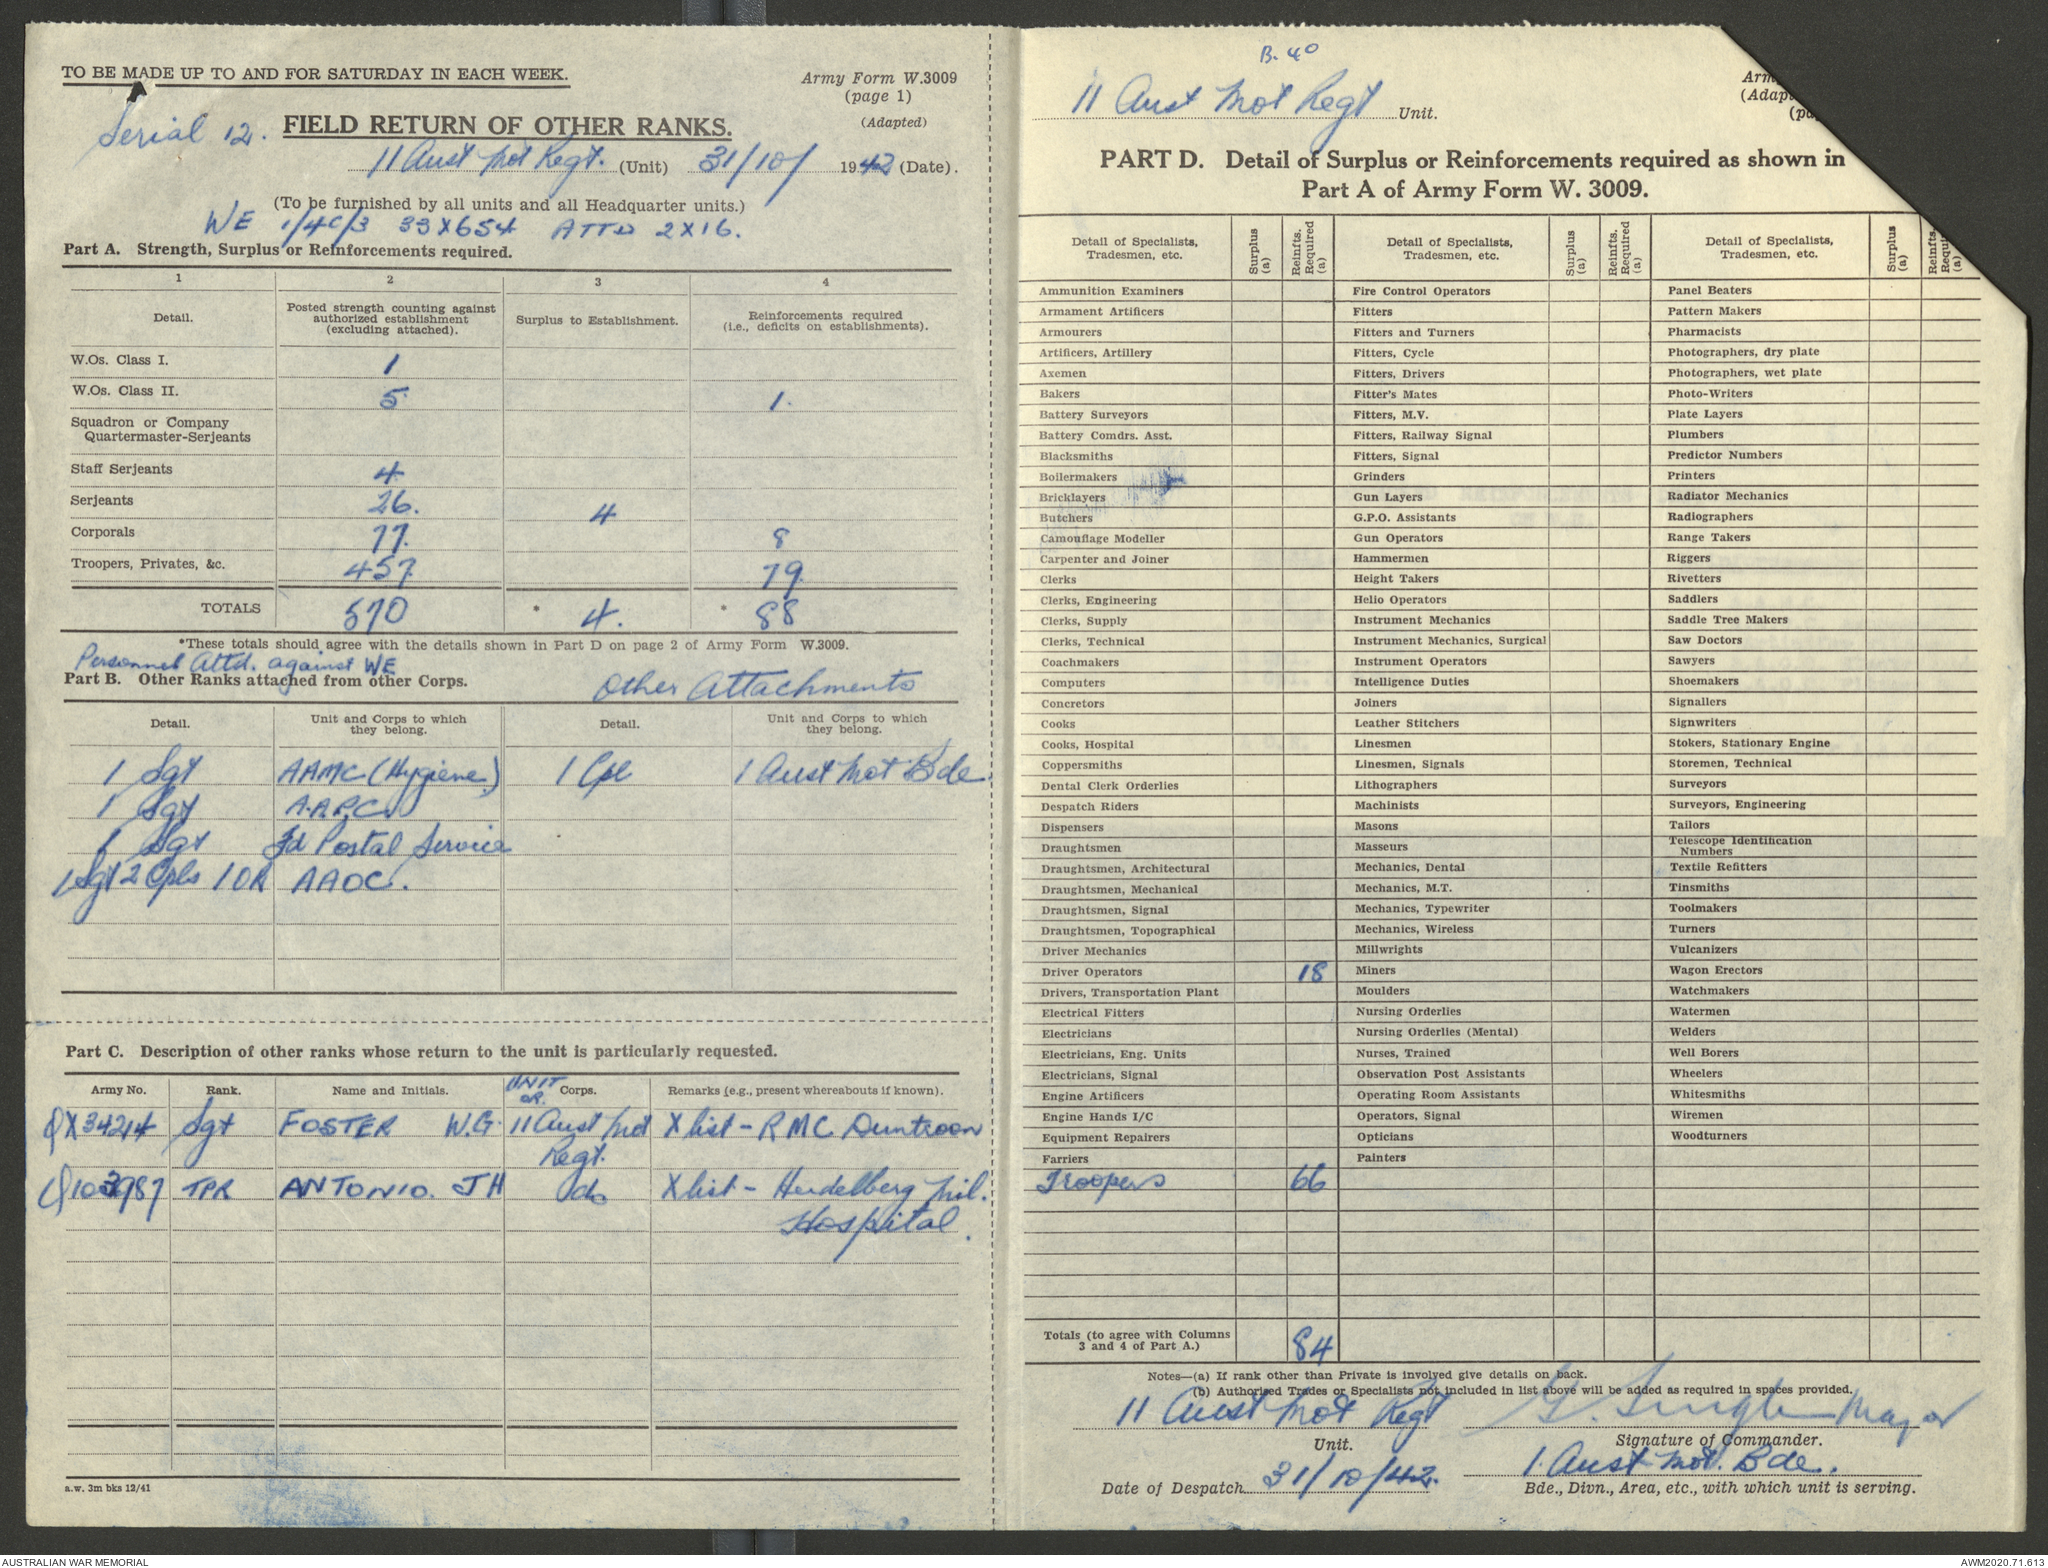 TO BE MADE UP TO AND FOR SATURDAY IN EACH WEEK.
Army Form W.3009
(page 1)
(Adapted)
Serial 12.
FIELD RETURN OF OTHER RANKS.
11 Aust Mot Regt. (Unit) 31/10/ 1942 (Date).
(To be furnished by all units and all Headquarter units.)
WE 1/4C/3 33X654 ATTD 2X16.
Part A. Strength, Surplus or Reinforcements required.
1 2 3 4
Detail. Posted strength counting against authorized establishment (excluding attached). Surplus to Establishment. Reinforcements required (i.e., deficits on establishments).
W.Os. Class I. 1
W.Os. Class II. 5 1.
Squadron or Company
Quartermaster-Serjeants
Staff Serjeants 4
Serjeants 26. 4
Corporals 77. 8
Troopers, Privates, &c. 457. 79
TOTALS 570 * 4. * 88
*These totals should agree with the details shown in Part D on page 2 of Army Form W.3009.
Personnel Attd. against WE
Part B. Other Ranks attached from other Corps. Other Attachments
Detail. Unit and Corps to which they belong. Detail. Unit and Corps to which they belong.
1 Sgt AAMC (Hygiene) 1 Cpl 1 Aust Mot Bde
1 Sgt A.A.P.C.
1 Sgt Fd Postal Service
1 Sgt 2 Cpls 1 OR AAOC.
Part C. Description of other ranks whose return to the unit is particularly requested.
Army No. Rank. Name and Initials. UNIT OR. Corps. Remarks (e.g., present whereabouts if known).
QX34214 Sgt FOSTER W.G. 11 Aust Mot Regt. X list - RMC Duntroon
Q103987 TPR ANTONIO. JH do X list - Heidelberg Mil.
Hospital.
a.w. 3m bks 12/41
B. 40
11 Aust Mot Regt Unit.
Arm
(Adap
(pa
PART D. Detail of Surplus or Reinforcements required as shown in
Part A of Army Form W. 3009.
Detail of Specialists, Tradesmen, etc. Surplus (a) Reinfts. Required (a) Detail of Specialists, Tradesmen, etc. Surplus (a) Reinfts. Required (a) Detail of Specialists, Tradesmen, etc. Surplus (a) Reinfts. Required (a)
Ammunition Examiners Fire Control Operators Panel Beaters
Armament Artificers Fitters Pattern Makers
Armourers Fitters and Turners Pharmacists
Artificers, Artillery Fitters, Cycle Photographers, dry plate
Axemen Fitters, Drivers Photographers, wet plate
Bakers Fitter's Mates Photo-Writers
Battery Surveyors Fitters, M.V. Plate Layers
Battery Comdrs. Asst. Fitters, Railway Signal Plumbers
Blacksmiths Fitters, Signal Predictor Numbers
Boilermakers Grinders Printers
Bricklayers Gun Layers Radiator Mechanics
Butchers G.P.O. Assistants Radiographers
Camouflage Modeller Gun Operators Range Takers
Carpenter and Joiner Hammermen Riggers
Clerks Height Takers Rivetters
Clerks, Engineering Helio Operators Saddlers
Clerks, Supply Instrument Mechanics Saddle Tree Makers
Clerks, Technical Instrument Mechanics, Surgical Saw Doctors
Coachmakers Instrument Operators Sawyers
Computers Intelligence Duties Shoemakers
Concretors Joiners Signallers
Cooks Leather Stitchers Signwriters
Cooks, Hospital Linesmen Stokers, Stationary Engine
Coppersmiths Linesmen, Signals Storemen, Technical
Dental Clerk Orderlies Lithographers Surveyors
Despatch Riders Machinists Surveyors, Engineering
Dispensers Masons Tailors
Draughtsmen Masseurs Telescope Identification Numbers
Draughtsmen, Architectural Mechanics, Dental Textile Refitters
Draughtsmen, Mechanical Mechanics, M.T. Tinsmiths
Draughtsmen, Signal Mechanics, Typewriter Toolmakers
Draughtsmen, Topographical Mechanics, Wireless Turners
Driver Mechanics Millwrights Vulcanizers
Driver Operators 18 Miners Wagon Erectors
Drivers, Transportation Plant Moulders Watchmakers
Electrical Fitters Nursing Orderlies Watermen
Electricians Nursing Orderlies (Mental) Welders
Electricians, Eng. Units Nurses, Trained Well Borers
Electricians, Signal Observation Post Assistants Wheelers
Engine Artificers Operating Room Assistants Whitesmiths
Engine Hands I/C Operators, Signal Wiremen
Equipment Repairers Opticians Woodturners
Farriers Painters
Troopers 66
Totals (to agree with Columns 3 and 4 of Part A.) 84
Notes—(a) If rank other than Private is involved give details on back.
(b) Authorised Trades or Specialists not included in list above will be added as required in spaces provided.
11 Aust Mot Regt Major
Unit. Signature of Commander.
1. Aust. Mot. Bde.
Date of Despatch 31/10/42. Bde., Divn., Area, etc., with which unit is serving.
AUSTRALIAN WAR MEMORIAL
AWM2020.71.613